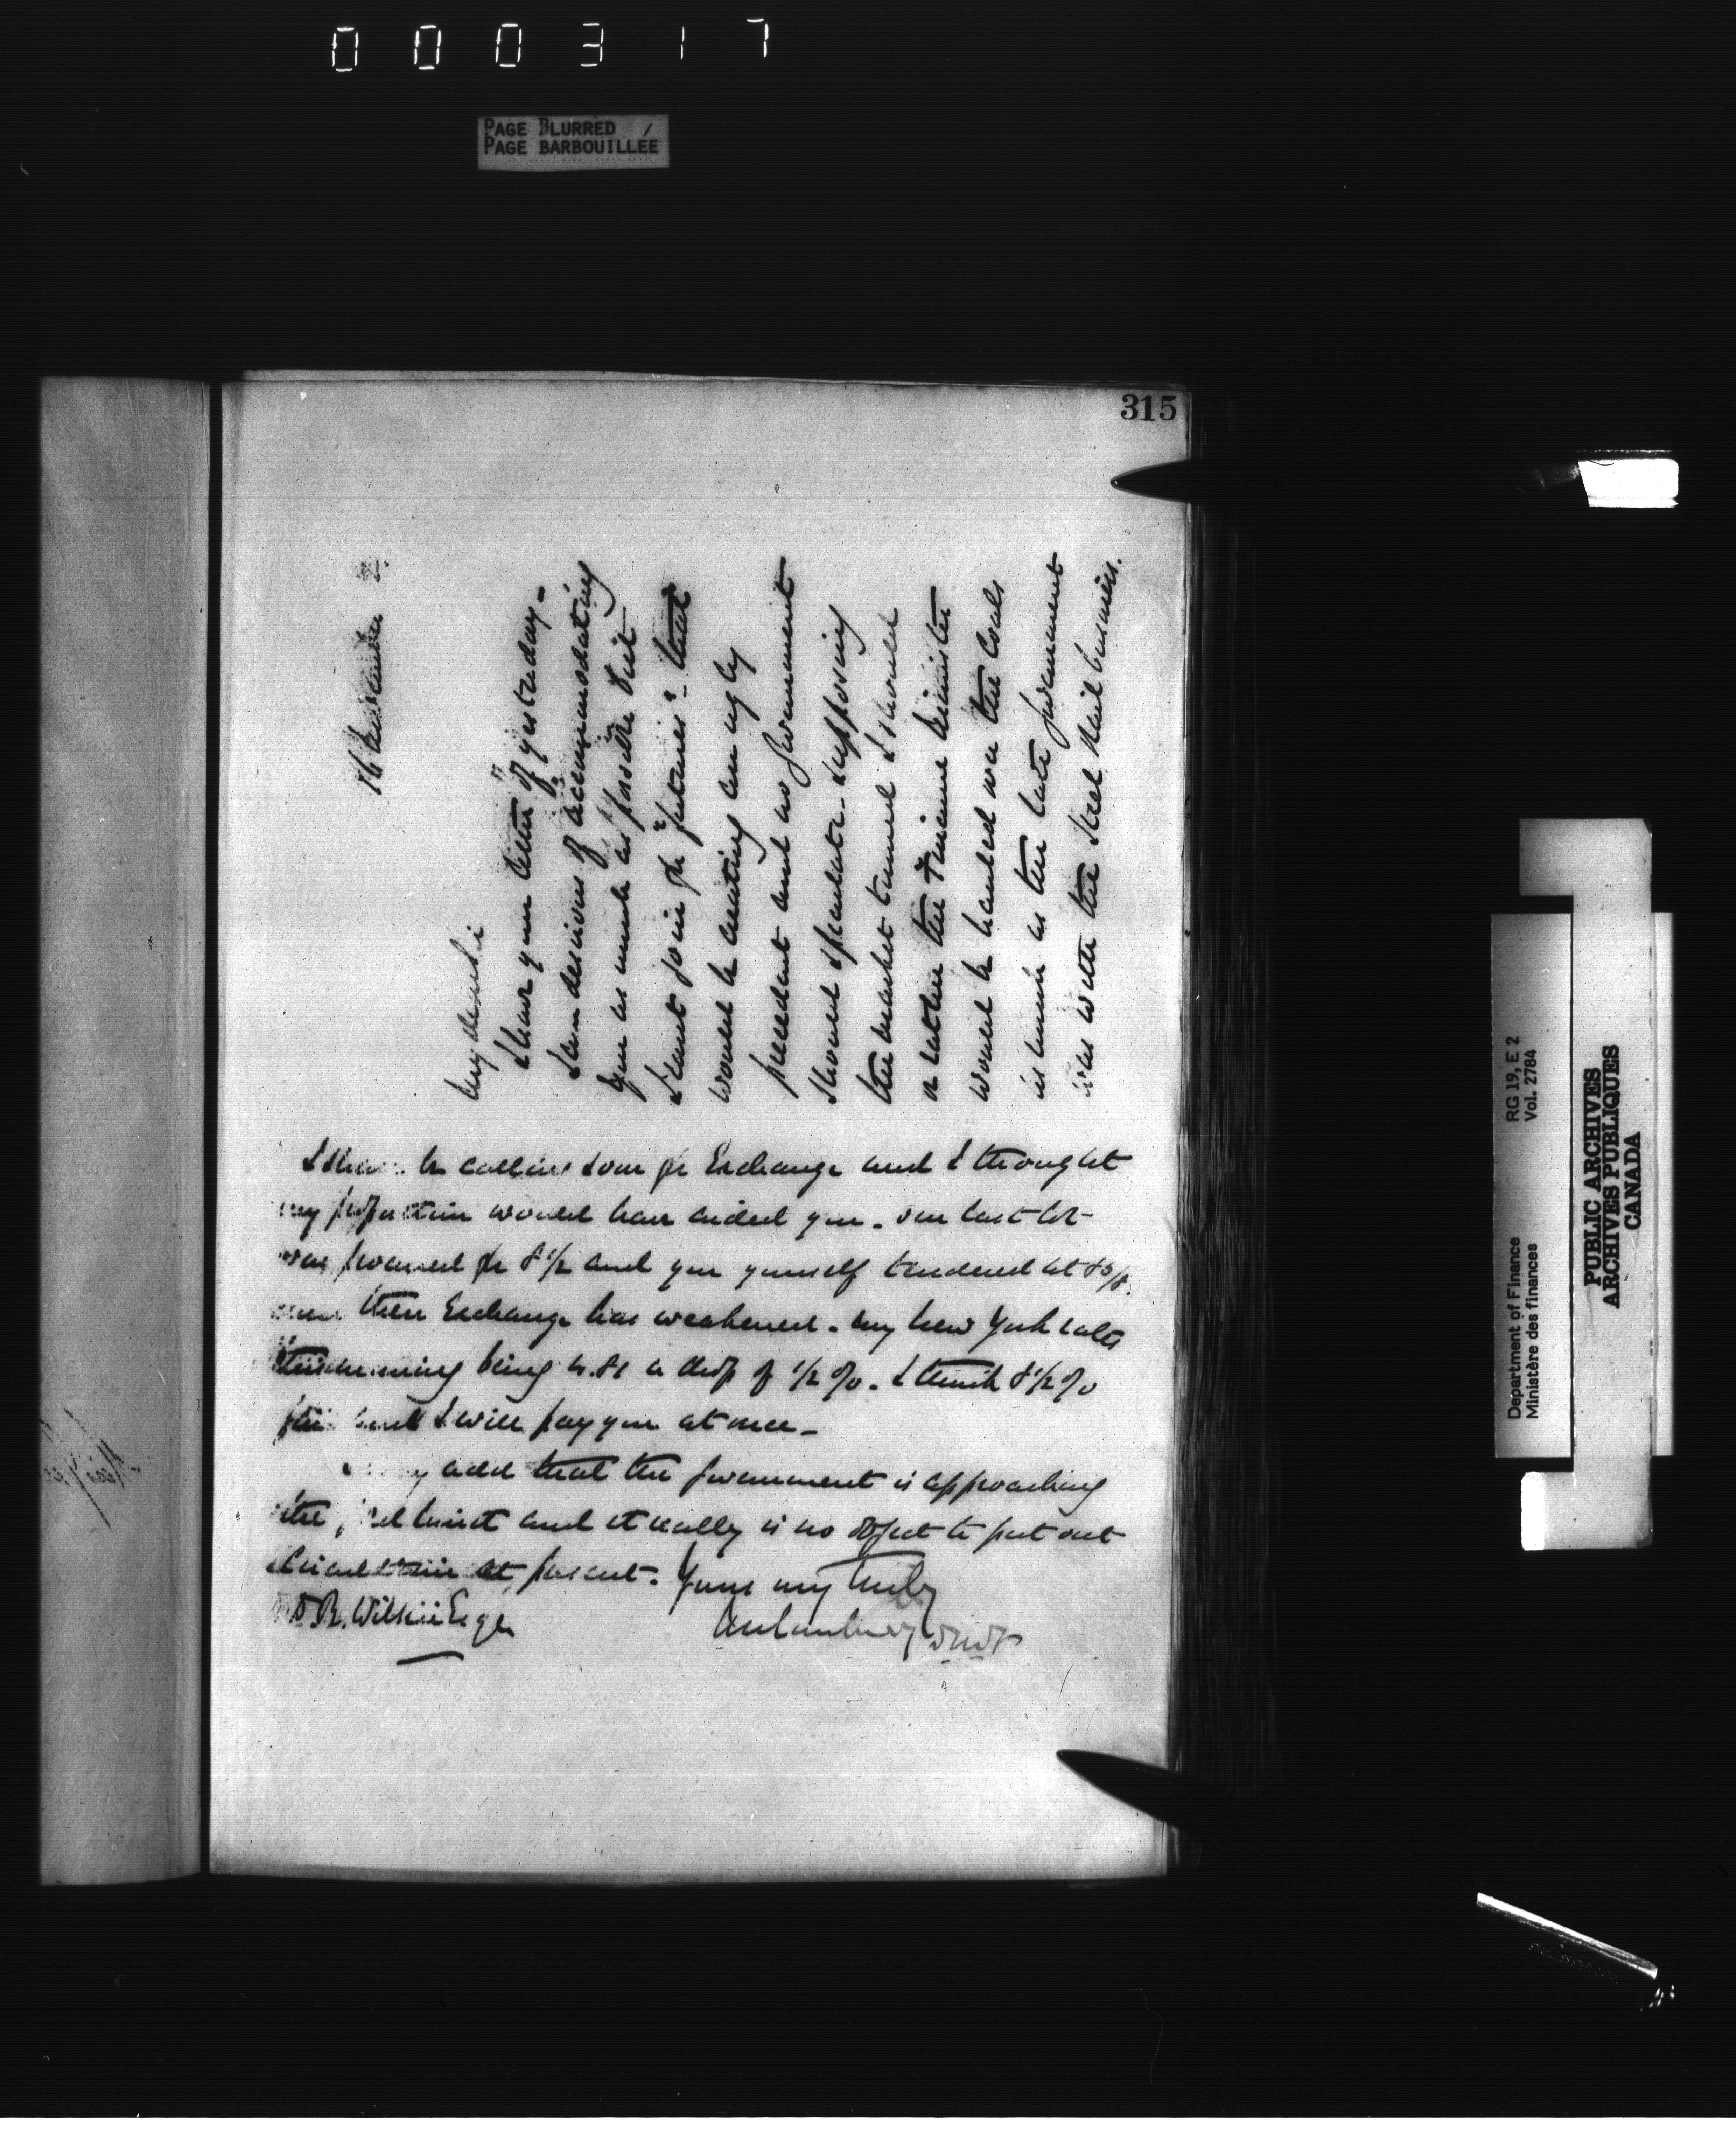 000317
PAGE BLURRED
PAGE BARBOUILLÉE
315
16
My dear Sir
I have your letter of yesterday -
I am desirous of accommodating
you as much as possible but
I cant go in for "futures" - that
would be creating an ugly
precedent and no Government
should speculate - supposing
the market turned I should
or rather the Finance Minister
would be hauled over the coals
as the late Government
was with the Steel Rail business.
I be calling soon for Exchange and I thought
my proposition would have aided you. Our last lot
was for 8 1/2 and you yourself tendered at 8 5/8.
then Exchange has weakened - my New York rates
this morning being 4.81 a drop of 1/2 %. I think 8 1/2 %
fair and I will pay you at once -
add that the Government is approaching
the limit and it really is no object to put out
at present. Yours very truly
D R. Wilkie Esqr
DMF
RG 19, E 2
Vol. 2784
Department of Finance
Ministère des finances
PUBLIC ARCHIVES
ARCHIVES PUBLIQUES
CANADA